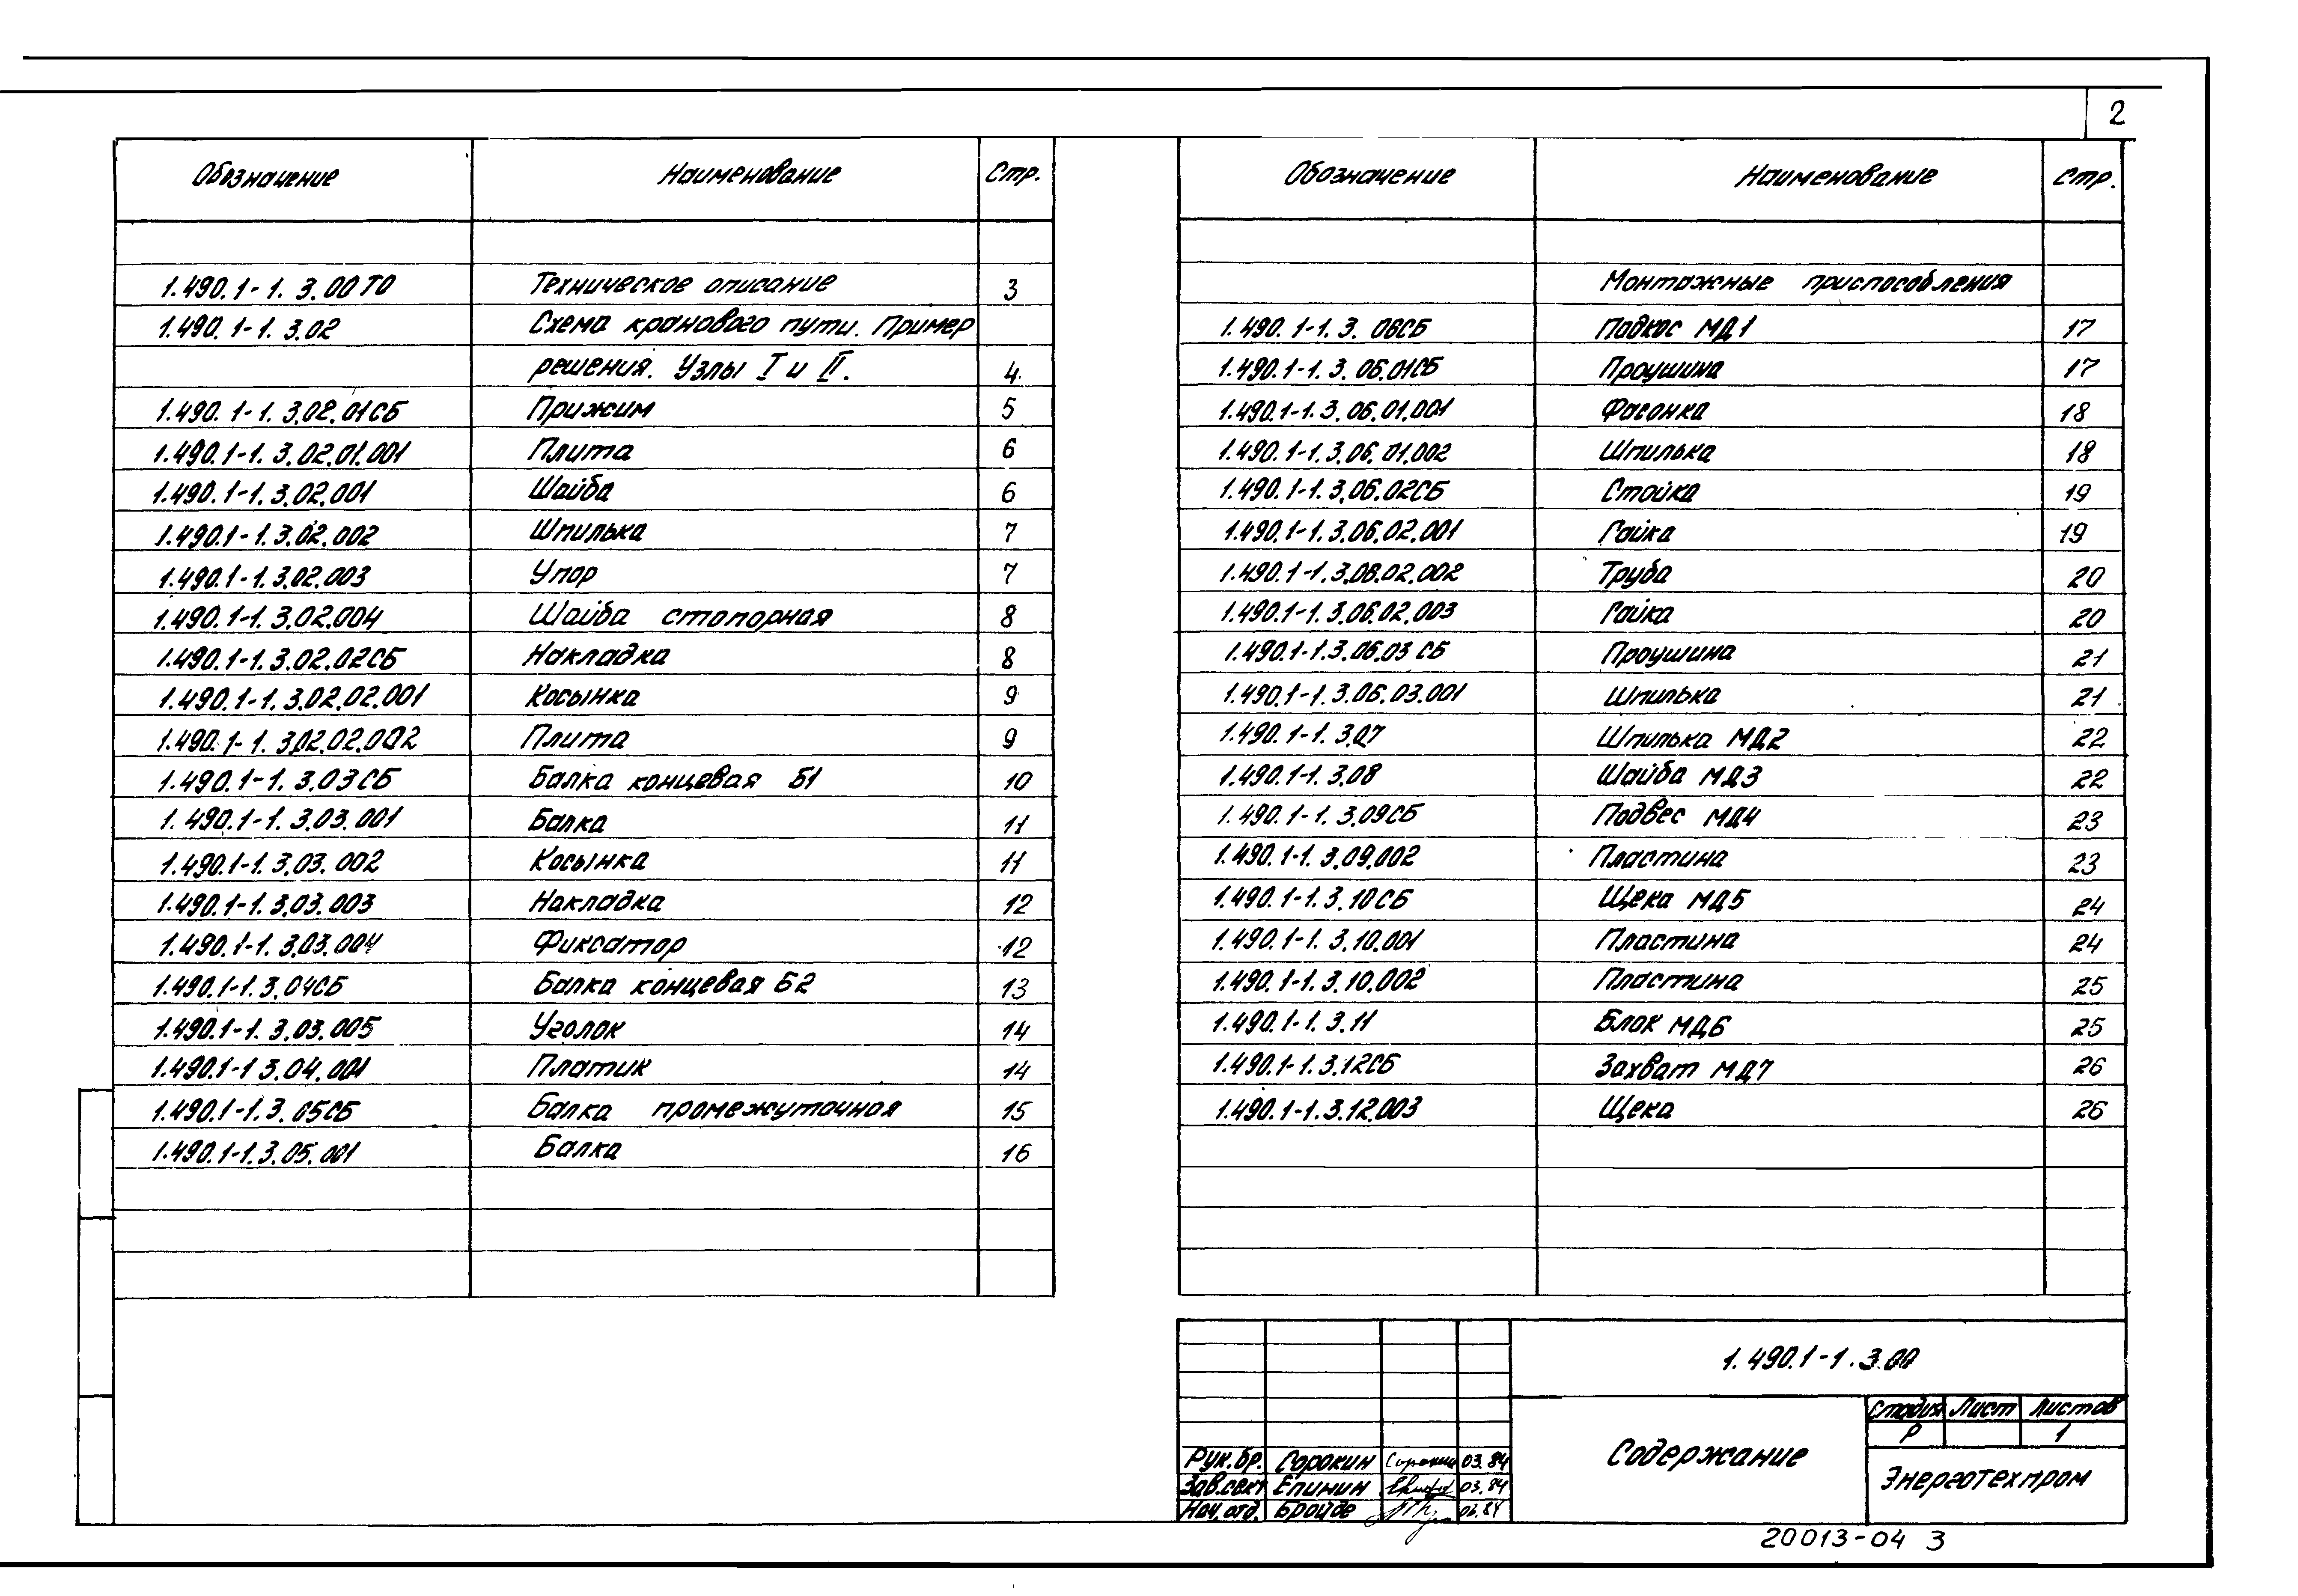 2
Обозначение Наименование Стр.
1.490.1-1. 3.00ТО Техническое описание 3
1.490.1-1. 3.02 Схема кранового пути. Пример
решения. Узлы I и II. 4
1.490.1-1. 3.02.01СБ Прижим 5
1.490.1-1. 3.02.01.001 Плита 6
1.490.1-1. 3.02.001 Шайба 6
1.490.1-1. 3.02.002 Шпилька 7
1.490.1-1. 3.02.003 Упор 7
1.490.1-1. 3.02.004 Шайба стопорная 8
1.490.1-1. 3.02.02СБ Накладка 8
1.490.1-1. 3.02.02.001 Косынка 9
1.490.1-1. 3.02.02.002 Плита 9
1.490.1-1. 3.03СБ Балка концевая Б1 10
1.490.1-1. 3.03.001 Балка 11
1.490.1-1. 3.03.002 Косынка 11
1.490.1-1. 3.03.003 Накладка 12
1.490.1-1. 3.03.004 Фиксатор 12
1.490.1-1. 3.04СБ Балка концевая Б2 13
1.490.1-1. 3.03.005 Уголок 14
1.490.1-1 3.04.001 Платик 14
1.490.1-1. 3.05СБ Балка промежуточная 15
1.490.1-1. 3.05.001 Балка 16
Обозначение Наименование Стр.
Монтажные приспособления
1.490.1-1. 3.06СБ Подкос МД1 17
1.490.1-1. 3.06.01СБ Проушина 17
1.490.1-1. 3.06.01.001 Фасонка 18
1.490.1-1. 3.06.01.002 Шпилька 18
1.490.1-1. 3.06.02СБ Стойка 19
1.490.1-1. 3.06.02.001 Гайка 19
1.490.1-1. 3.06.02.002 Труба 20
1.490.1-1. 3.06.02.003 Гайка 20
1.490.1-1. 3.06.03 СБ Проушина 21
1.490.1-1. 3.06.03.001 Шпилька 21
1.490.1-1. 3.07 Шпилька МД2 22
1.490.1-1. 3.08 Шайба МД3 22
1.490.1-1. 3.09СБ Подвес МД4 23
1.490.1-1. 3.09.002 Пластина 23
1.490.1-1. 3.10СБ Щека МД5 24
1.490.1-1. 3.10.001 Пластина 24
1.490.1-1. 3.10.002 Пластина 25
1.490.1-1. 3.11 Блок МД6 25
1.490.1-1. 3.12СБ Захват МД7 26
1.490.1-1. 3.12.003 Щека 26
1.490.1-1. 3.00
Содержание
Стадия Лист Листов
Р 1
Энерготехпром
Рук.бр. Сорокин Сорокин 03.84
Зав.сект Епинин 03.84
Нач.отд. Бройде
20013-04 3